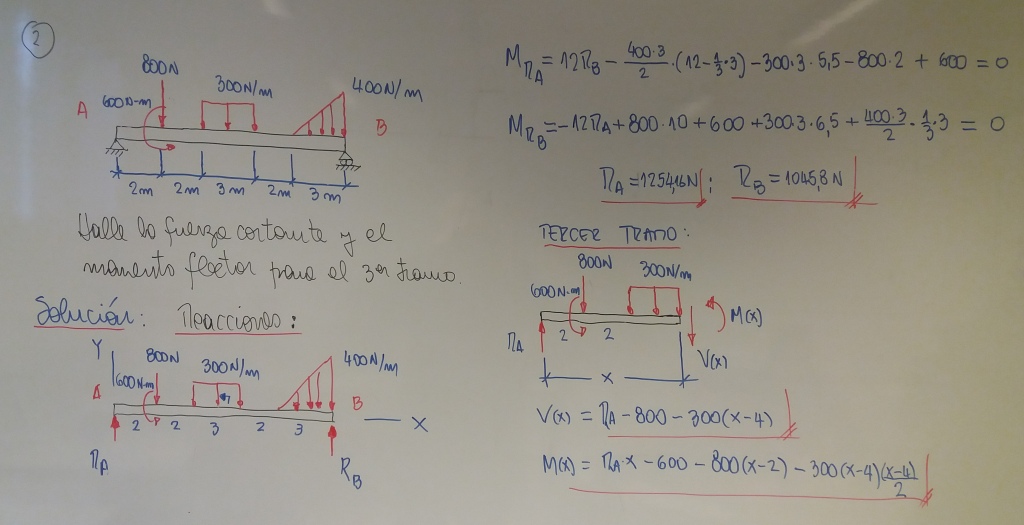 2
800N
300N/m
400N/m
A
600N-m
B
2m 2m 3m 2m 3m
Halle la fuerza cortante y el
momento flector para el 3er tramo.
Solución: Reacciones:
Y
800N
300N/m
400N/m
600N-m
A
B
X
2 2 3 2 3
RA
RB
M_RA = 12RB - 400·3/2 · (12 - 1/3·3) - 300·3·5,5 - 800·2 + 600 = 0
M_RB = -12RA + 800·10 + 600 + 300·3·6,5 + 400·3/2 · 1/3·3 = 0
RA = 1254,16N ; RB = 1045,8N
TERCER TRAMO:
800N
300N/m
600N-m
M(x)
2 2
RA
V(x)
x
V(x) = RA - 800 - 300(x-4)
M(x) = RA·x - 600 - 800(x-2) - 300(x-4)(x-4)/2